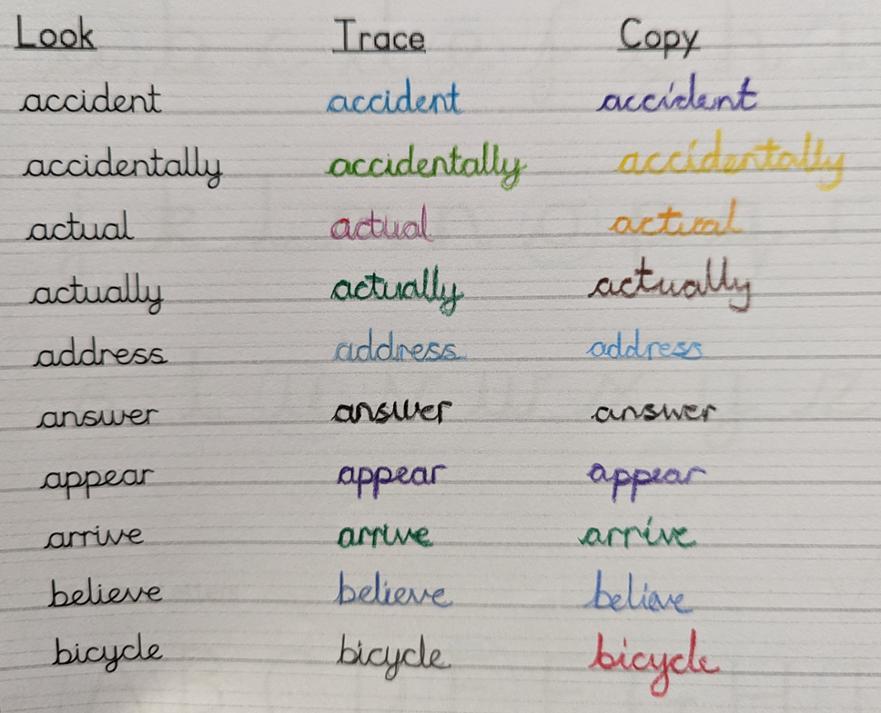 Look Trace Copy
accident accident accident
accidentally accidentally accidentally
actual actual actual
actually actually actually
address address address
answer answer answer
appear appear appear
arrive arrive arrive
believe believe believe
bicycle bicycle bicycle